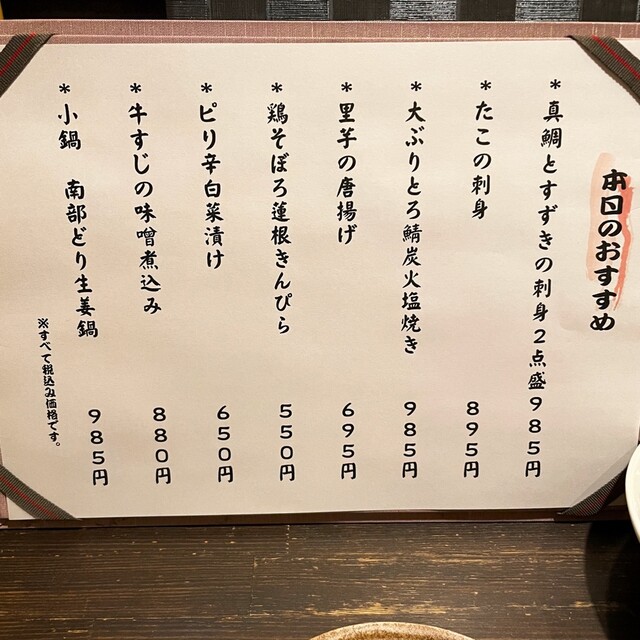 本日のおすすめ
*真鯛とすずきの刺身2点盛 985円
*たこの刺身 895円
*大ぶりとろ鯖炭火塩焼き 985円
*里芋の唐揚げ 695円
*鶏そぼろ蓮根きんぴら 550円
*ピリ辛白菜漬け 650円
*牛すじの味噌煮込み 880円
*小鍋 南部どり生姜鍋 985円
※すべて税込み価格です。